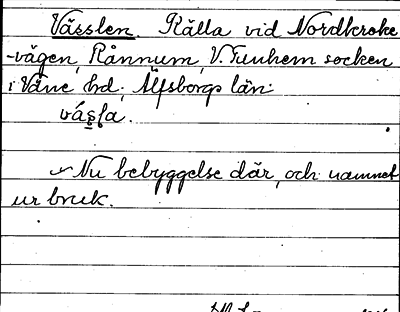 Vässlen. Källa vid Nordkroke
-vägen, Rånnum, V. Tunhem socken
i Väne hd, Älfsborgs län.
vás̥l̥a.
Nu bebyggelse där, och namnet
ur bruk.